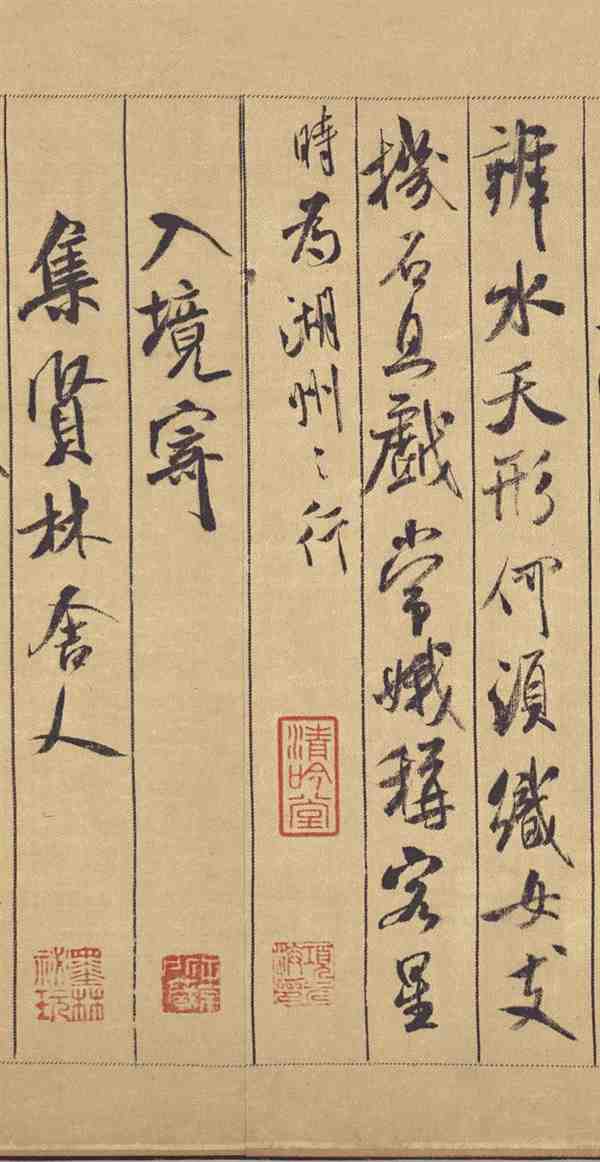 辨水天形何須織女支
機石且戲常娥稱客星
時為湖州之行
清吟堂
入境寄
集賢林舍人
墨林
祕玩